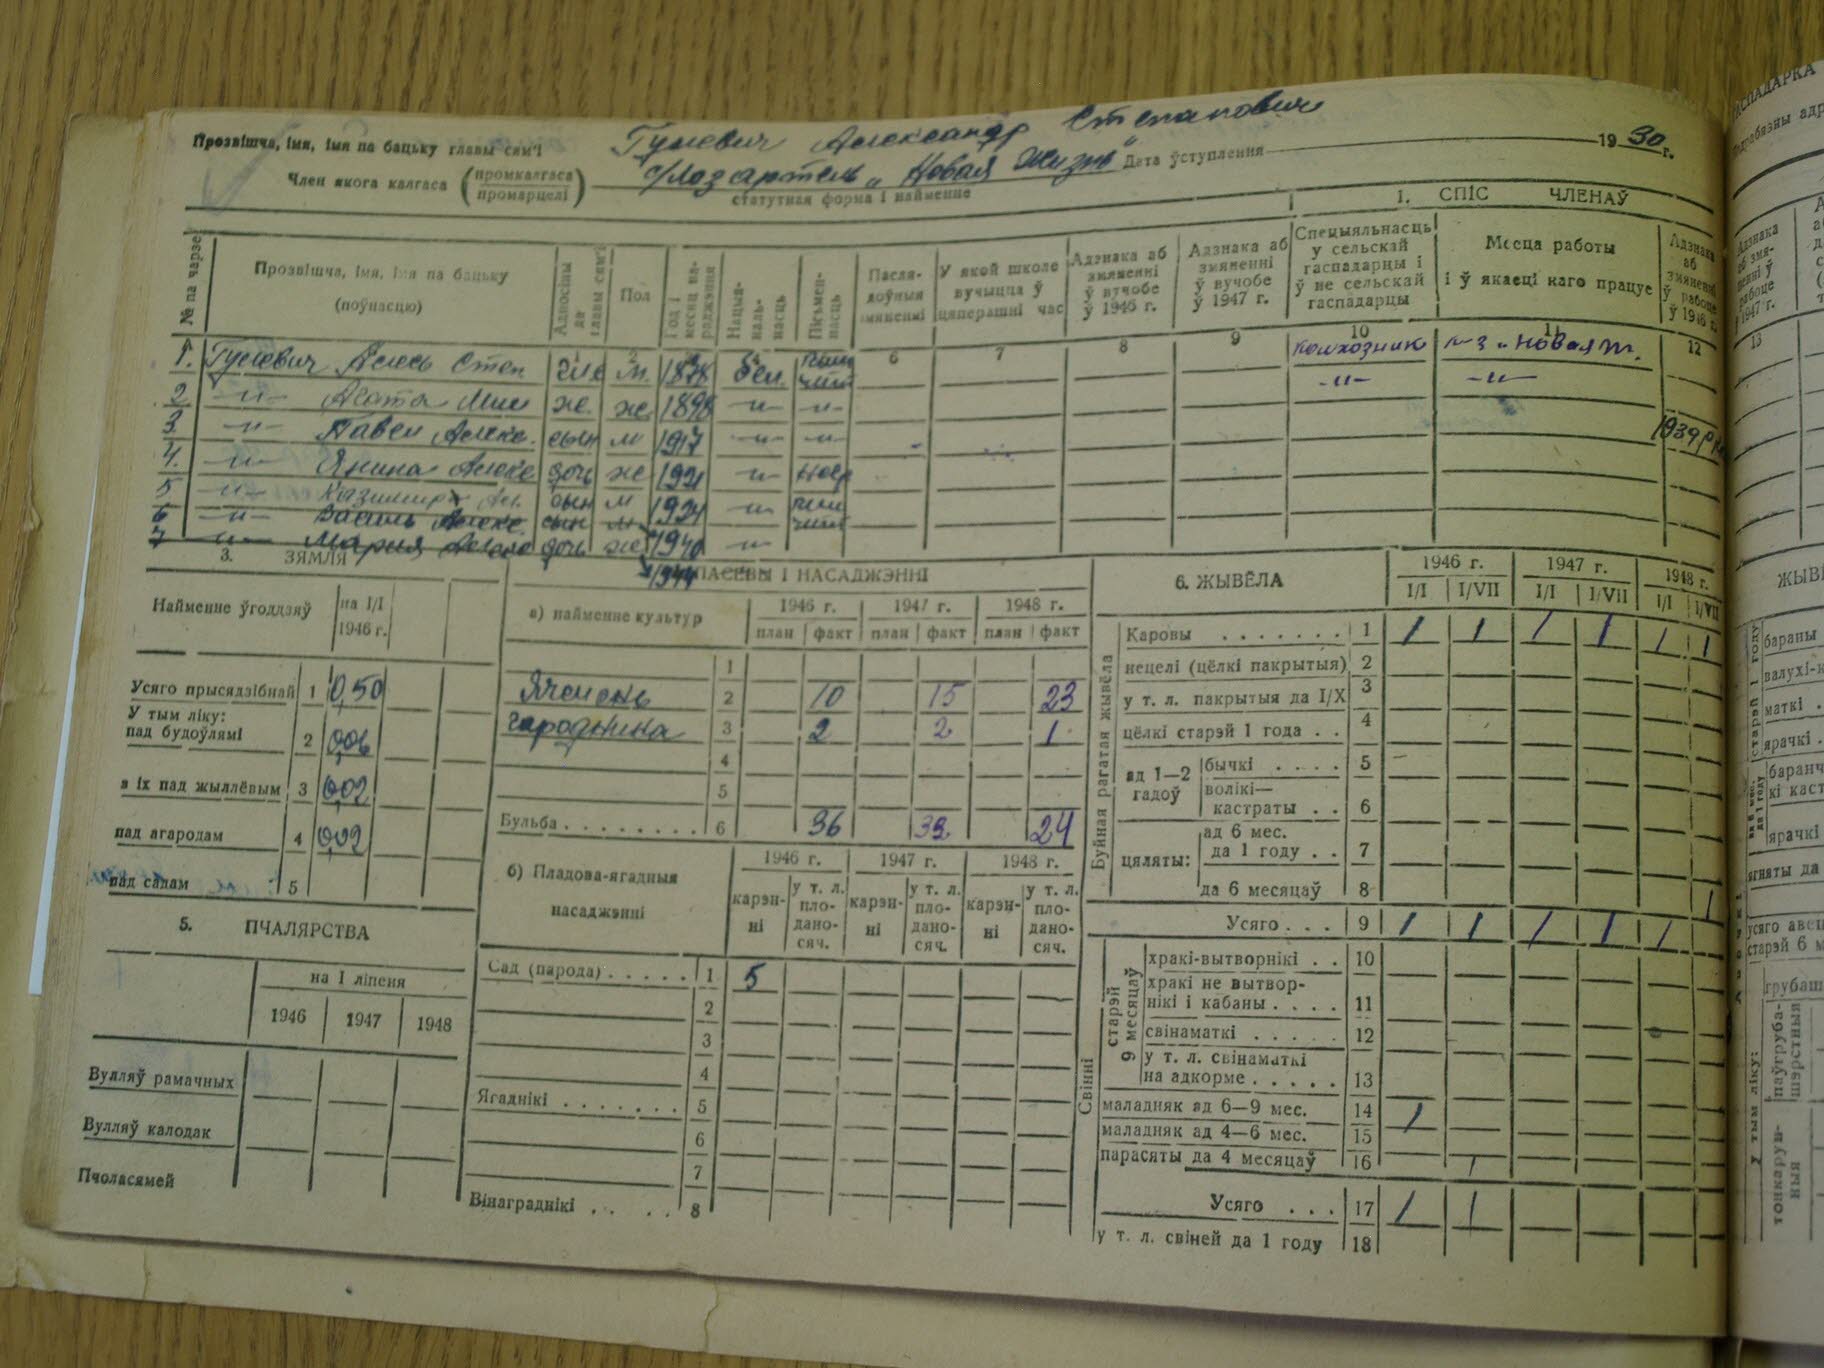 Прозвішча, імя, імя па бацьку главы сям'і Гулевич Александр Степанович
Член якога калгаса (промкалгаса промарцелі) с/хозартель „Новая Жизнь" Дата ўступлення 1930 г.
статутная форма і найменне
1. СПІС ЧЛЕНАЎ
№ па чарзе
Прозвішча, імя, імя па бацьку (поўнасцю)
Адносіны да главы сям'і
Пол
Год і месяц нараджэння
Нацыянальнасць
Пісьменнасць
Пасля- змяненні
У якой школе вучыцца ў цяперашні час
Адзнака аб змяненні ў вучобе ў 1946 г.
Адзнака аб змяненні ў вучобе ў 1947 г.
Спецыяльнасць у сельскай гаспадарцы і ў не сельскай гаспадарцы
Месца работы і ў якасці каго працуе
Адзнака аб змяненні ў рабоце ў 1946 г.
6 7 8 9 10 11 12
1. Гулевич Алесь Степ м. 1878 бел. колхозник к-з „Новая ж.
2 -"- Агата Мих же. же 1898 -"- -"- -"- -"-
3. -"- Павел Алекс. сын м 1917 -"- -"- 1939
4. -"- Янина Алекс дочь же 1921 -"-
5 -"- Казимир Ал. сын м 1924 -"-
6 -"- Василь Алекс. сын м
7 -"- Мария Алекс дочь же 1940 -"-
1944
3. ЗЯМЛЯ
Найменне ўгоддзяў на І/І 1946 г.
Усяго прысядзібнай 1 0,50
У тым ліку:
пад будоўлямі 2 0,06
з іх пад жыллёвым 3 0,02
пад агародам 4 0,09
пад садам 5
ПАСЕВЫ І НАСАДЖЭННІ
а) найменне культур 1946 г. 1947 г. 1948 г.
план факт план факт план факт
1
Ячмень 2 10 15 23
гародніна 3 2 2 1
4
5
Бульба 6 36 33 24
б) Пладова-ягадныя насаджэнні 1946 г. 1947 г. 1948 г.
карэнні у т. л. пладаносяч. карэнні у т. л. пладаносяч. карэнні у т. л. пладаносяч.
Сад (парода) 1 5
2
3
4
Ягаднікі 5
6
7
Вінаграднікі 8
5. ПЧАЛЯРСТВА
на І ліпеня
1946 1947 1948
Вулляў рамачных
Вулляў калодак
Пчоласямей
6. ЖЫВЁЛА 1946 г. 1947 г. 1948 г.
І/І І/VII І/І І/VII І/І І/VII
Буйная рагатая жывёла
Каровы 1 1 1 1 1 1 1
нецелі (цёлкі пакрытыя) 2
у т. л. пакрытыя да І/Х 3
цёлкі старэй 1 года 4
ад 1—2 гадоў
бычкі 5
волікі—кастраты 6
цяляты:
ад 6 мес. да 1 году 7
да 6 месяцаў 8
Усяго 9 1 1 1 1 1 1
Свінні
старэй 9 месяцаў
хракі-вытворнікі 10
хракі не вытворнікі і кабаны 11
свінаматкі 12
у т. л. свінаматкі на адкорме 13
маладняк ад 6—9 мес. 14 1
маладняк ад 4—6 мес. 15
парасяты да 4 месяцаў 16 1
Усяго 17 1 1
у т. л. свіней да 1 году 18
13
бараны
маткі
ярачкі
ярачкі